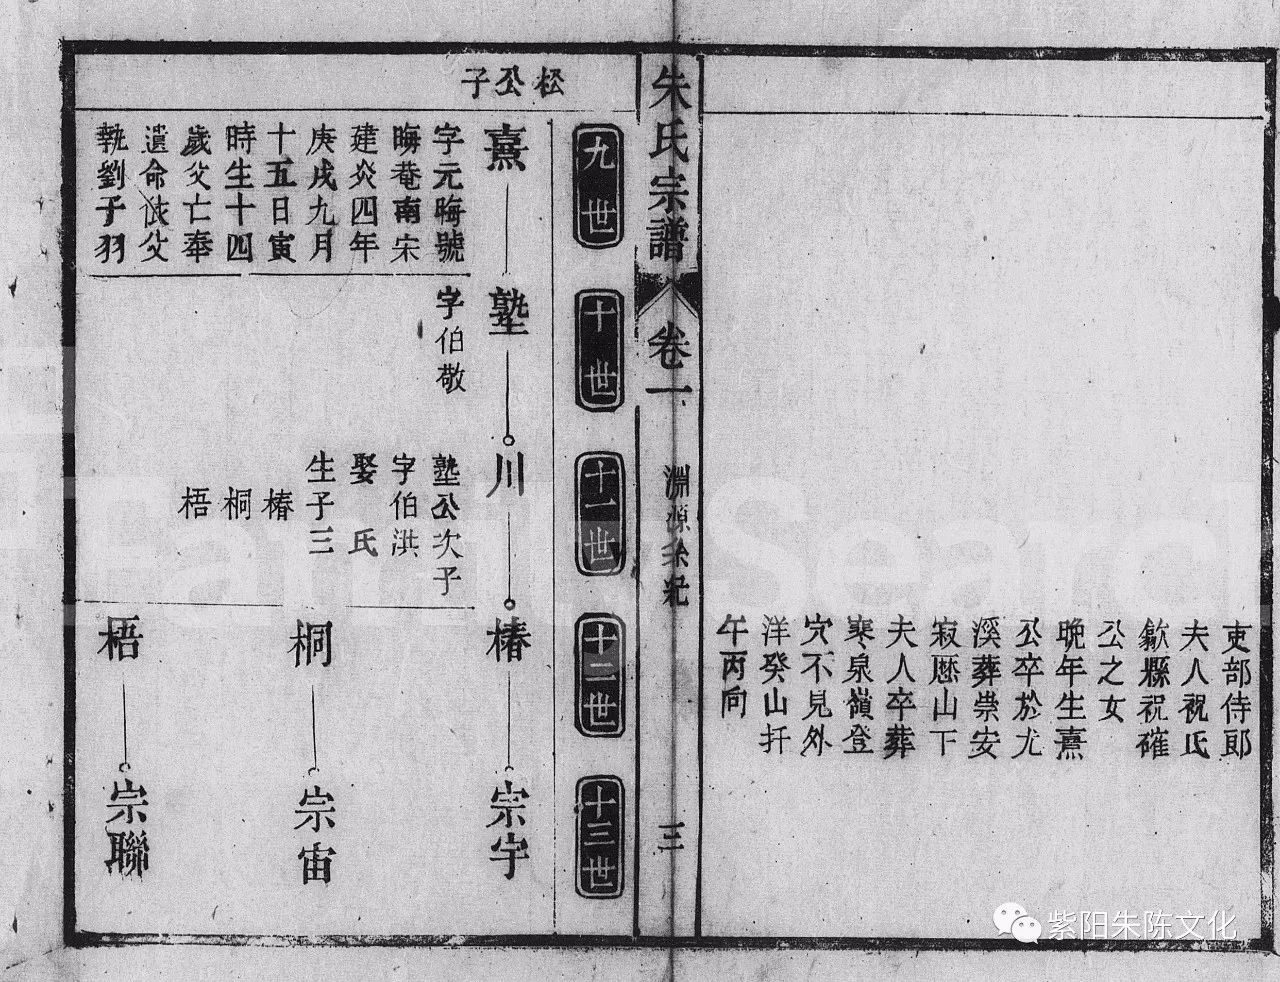 吏部侍郎
夫人祝氏
歙縣祝確
公之女
晩年生熹
公卒於尤
溪葬崇安
寂厯山下
夫人卒葬
寒泉嶺登
穴不見外
洋癸山扦
午丙向
朱氏宗譜
卷一
淵源
三
九世
十世
十一世
十二世
十三世
松公子
熹
字元晦號
晦菴南宋
建炎四年
庚戌九月
十五日寅
時生十四
歲父亡奉
遺命依父
執劉子羽
塾
字伯敬
川
塾公次子
字伯洪
娶 氏
生子三
椿
桐
梧
椿
桐
梧
宗宇
宗宙
宗聯
紫阳朱陈文化